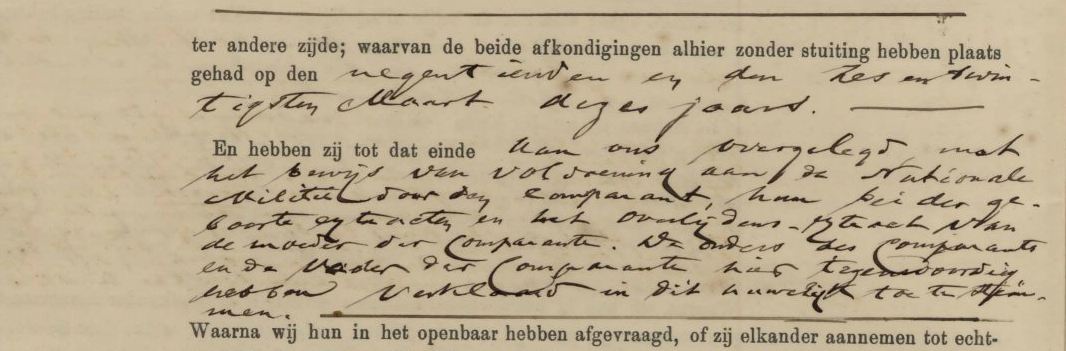 ter andere zijde; waarvan de beide afkondigingen alhier zonder stuiting hebben plaats
gehad op den negentienden en den zes en twin-
tigsten Maart dezes jaars.
En hebben zij tot dat einde aan ons overgelegd met
het bewijs van voldoening aan de Nationale
Militie door den Comparant, hun beider ge-
boorte extracten en het overlijdens-extract van
de moeder der Comparante. De ouders des Comparants
en de Vader der Comparante hier tegenwoordig
hebben verklaard in dit huwelijk toe te stem-
men.
Waarna wij hun in het openbaar hebben afgevraagd, of zij elkander aannemen tot echt-